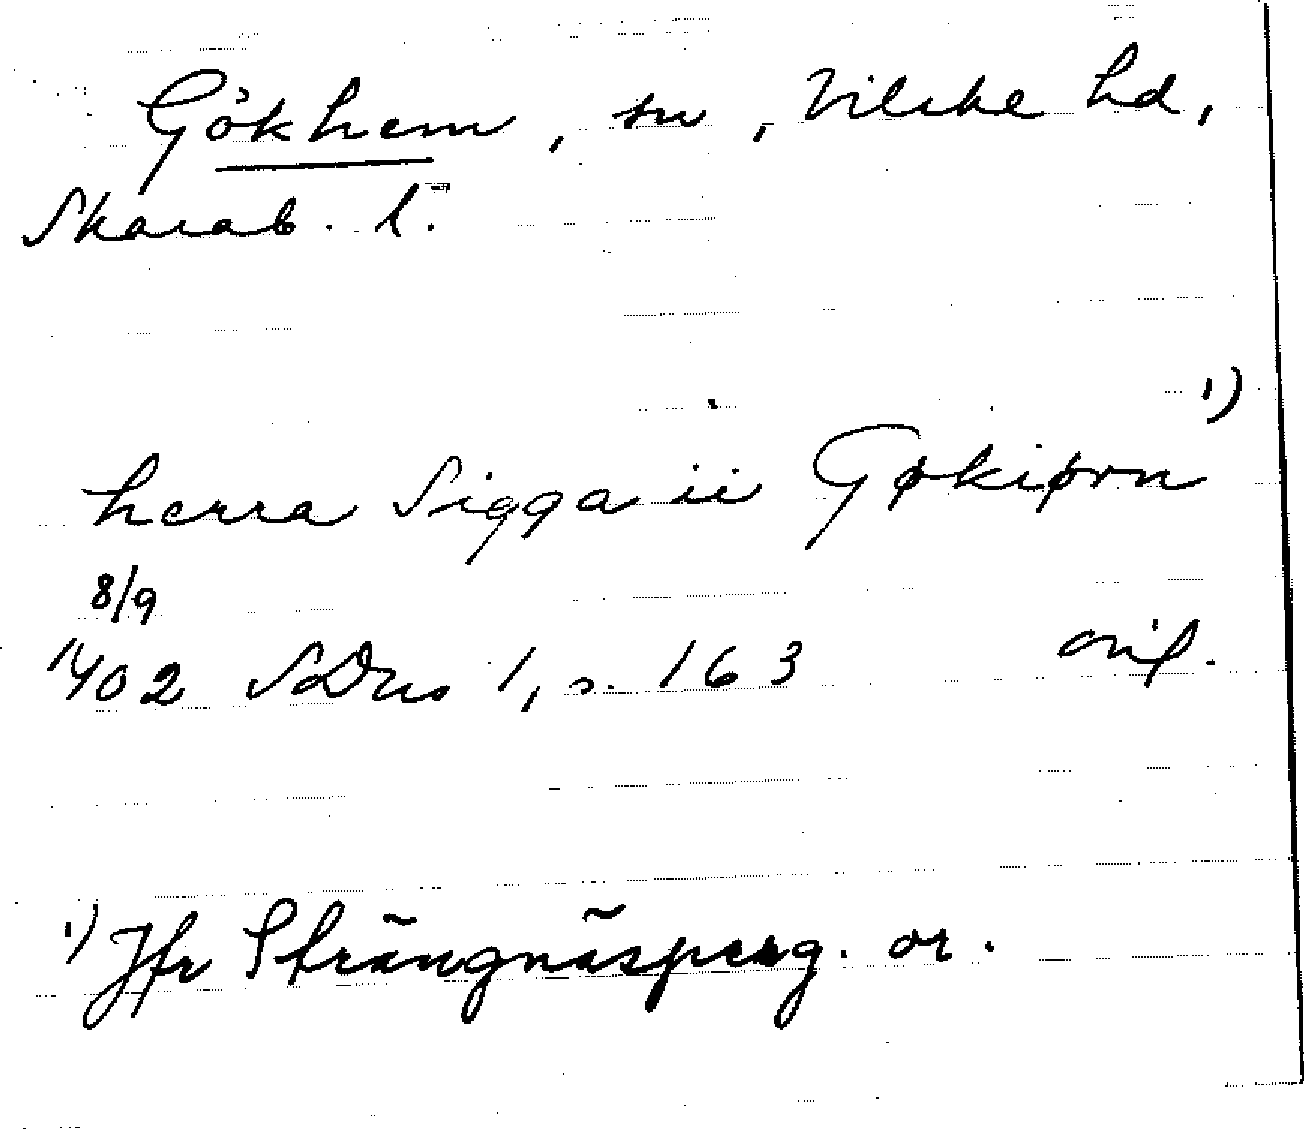 Gökhem, sn, Vilske hd,
Skarab. l.
herra Sigga ii Gøkiørn ¹)
8/9
1402 SDns 1, s. 163 orig.
¹) Jfr Strängnäsperg. or.